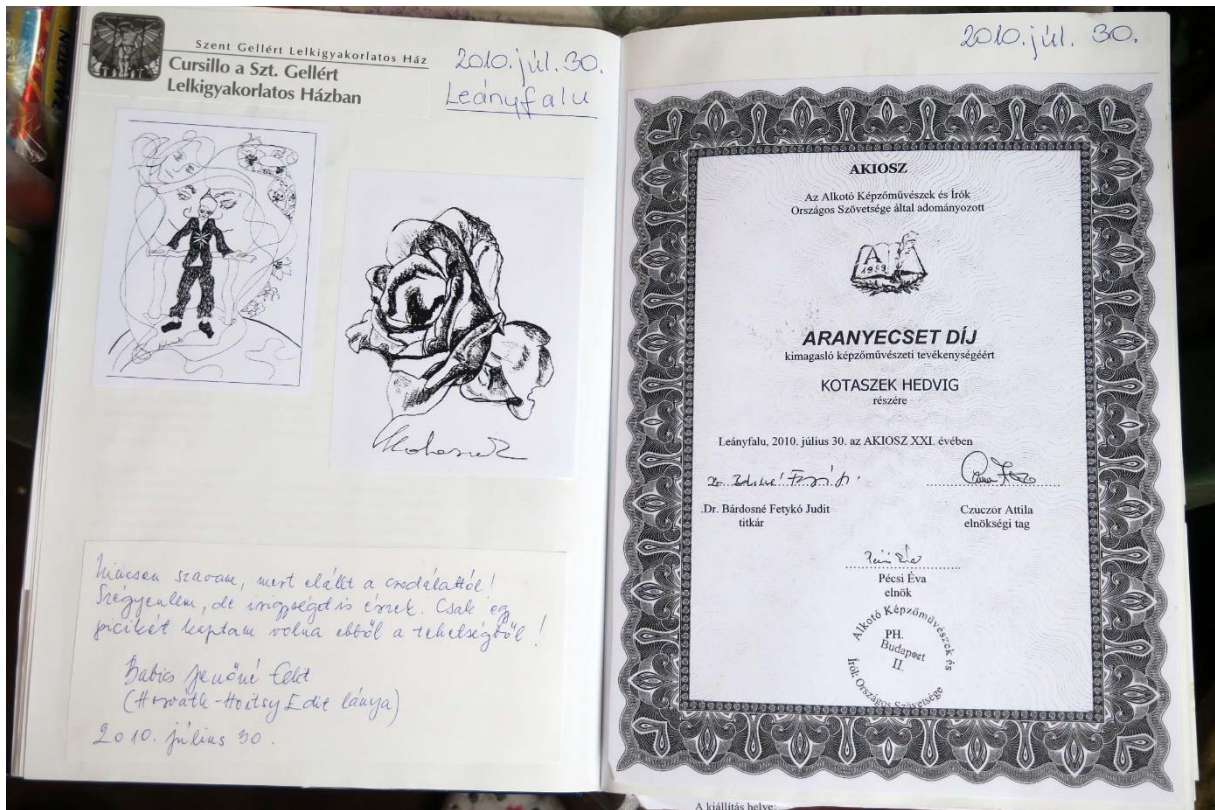 Szent Gellért Lelkigyakorlatos Ház
Cursillo a Szt. Gellért
Lelkigyakorlatos Házban
2010. júl. 30.
Leányfalu
Nincsen szavam, mert elállt a csodálattól!
Szégyenlem, de irigységet is érzek. Csak egy
picikét kaptam volna ebből a tehetségből!
Babics Jenőné
(Horváth-Hoitsy Edit lánya)
2010. július 30.
2010. júl. 30.
AKIOSZ
Az Alkotó Képzőművészek és Írók
Országos Szövetsége által adományozott
A
1989
ARANYECSET DÍJ
kimagasló képzőművészeti tevékenységéért
KOTASZEK HEDVIG
részére
Leányfalu, 2010. július 30. az AKIOSZ XXI. évében
.Dr. Bárdosné Fetykó Judit
titkár
Czuczor Attila
elnökségi tag
Pécsi Éva
Pécsi Éva
elnök
Alkotó Képzőművészek és
Írók Országos Szövetsége
PH.
Budapest
II.
A kiállítás helye: